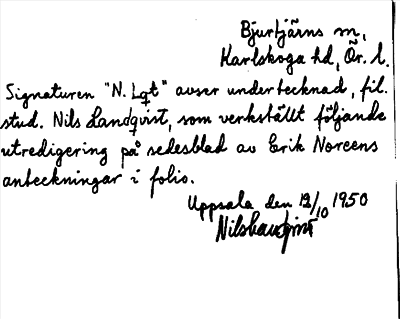 Bjurtjärns sn,
Karlskoga hd, Ör. l.
Signaturen "N. Lqt" avser undertecknad, fil.
stud. Nils Landqvist, som verkställt följande
utredigering på sedesblad av Erik Noreens
anteckningar i folio.
Uppsala den 12/10 1950
Nils Landqvist